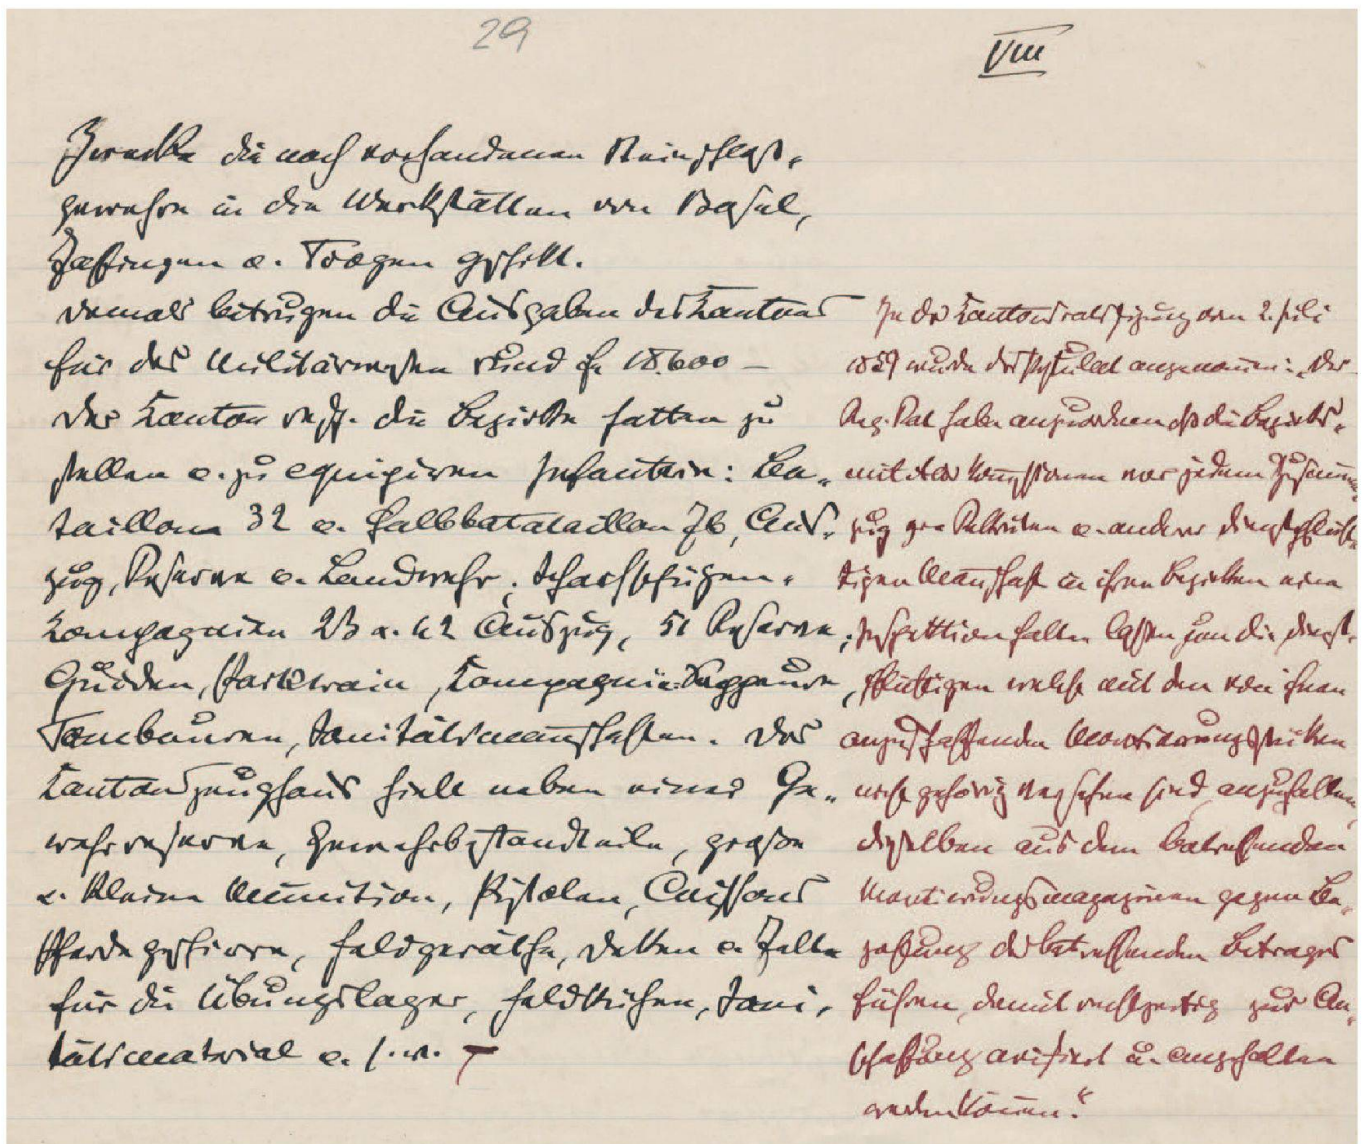 29
VIII
Zwecke die noch vorhandenen Steinschloß-
gewehre in den Werkstätten von Basel,
Zofingen u. Trogen
Damals betrugen die Ausgaben des Kantons
für das Militärwesen rund fr 18.600 –
Der Kanton resp. die Bezirke hatten zu
stellen u. zu equipiren Infanterie: Ba-
taillone 32 u. Halbbatataillon 76, Aus-
zug, Reserve u. Landwehr, Scharfschüzen-
Kompagnien 23 u. 42 Auszug, 51 Reserve,
Guiden, Parktrain, Kompagnie Sappeure,
Tambouren, Sanitätsmannschaften. Das
Kantonszeughaus hielt neben einer Ge-
wehrreserve, Gewehrbestandteile, große
u. kleine Munition, Pistolen, Caissons
Pferdegeschirre, Feldgeräthe, Decken u. Zelte
für die Übungslager, Feldküchen, Sani-
tätsmaterial u. s. w.
In der Kantonsratssizung vom 2. Juli
1859 wurde das Postulat angenommen: „Der
Reg. Rat habe anzuordnen daß die Bezirks-
vor jedem Zusam-
zug der Rekruten u. anderer dienstpflich-
tigen Mannschaft in ihren Bezirken eine
Inspektion halten lassen um die dienst-
pflichtigen welche mit den von ihnen
anzuschaffenden Montirungsstücken
nicht gehörig versehen sind, anzuhalten,
dieselben aus dem betreffenden
Montirungsmagazinen gegen Be-
zahlung des betreffenden Betrages
führen, damit rechtzeitig zur An-
schaffung avisiert u. angehalten
werden können.“